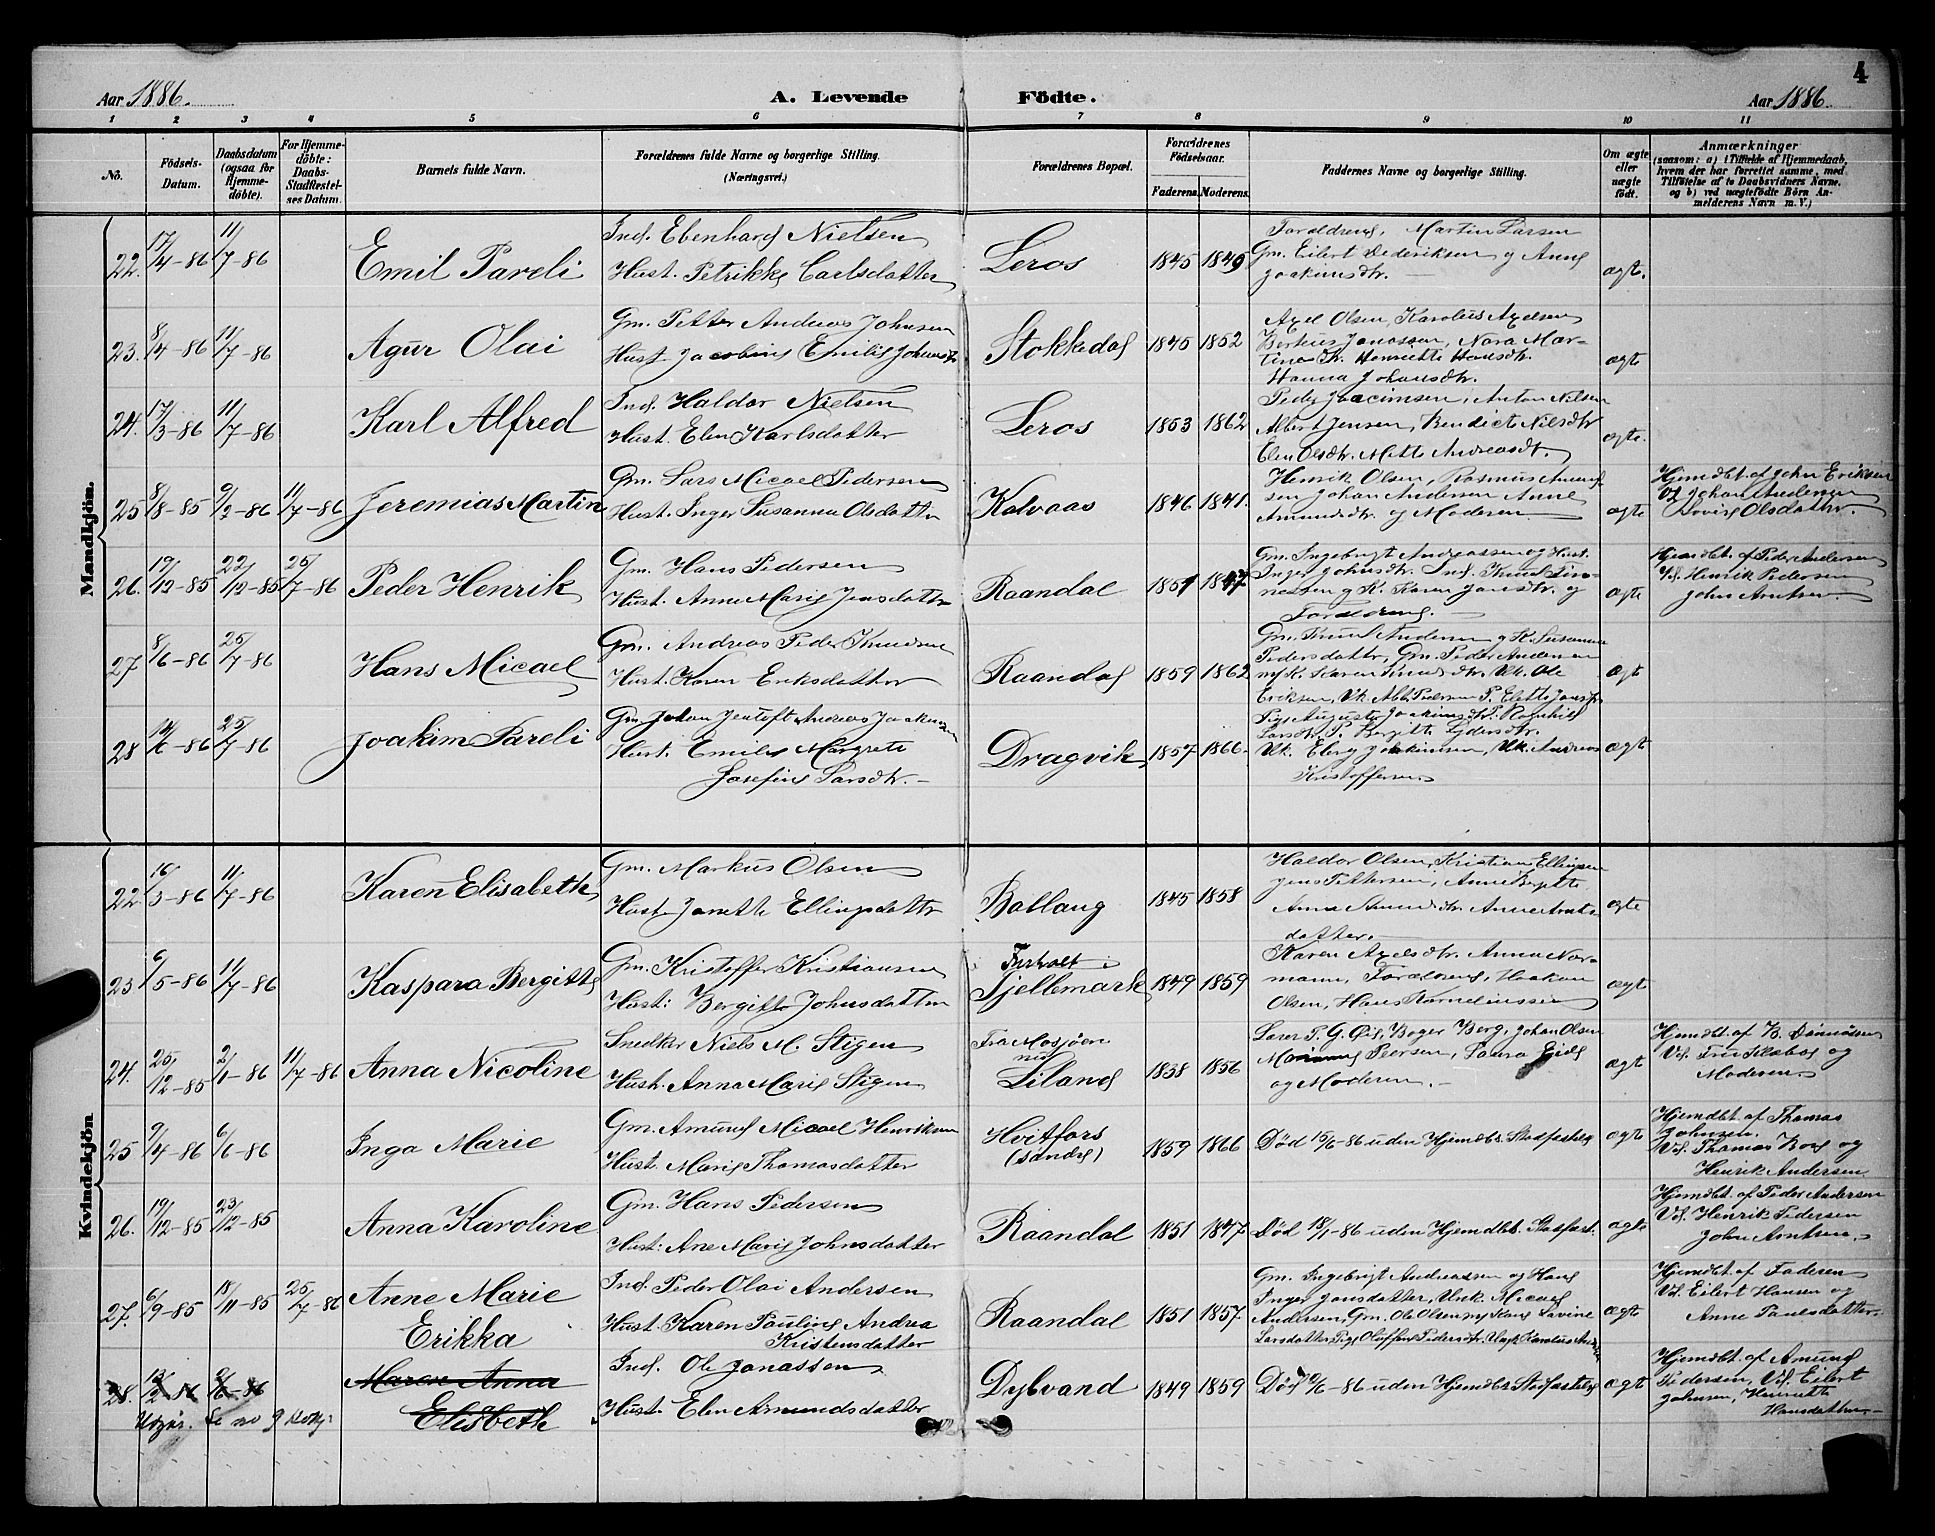 4
Aar 1886. A. Levende Födte. Aar 1886
1 2 3 4 5 6 7 8 9 10 11
No. Födsels-Datum. Daabsdatum (ogsaa for Hjemmedöbte). For Hjemmedöbte: Daabs-Stadfæstelses Datum. Barnets fulde Navn. Forældrenes fulde Navne og borgerlige Stilling. (Næringsvei.) Forældrenes Bopæl. Forældrenes Födselsaar. Faderens. Moderens. Faddernes Navne og borgerlige Stilling. Om ægte eller uægte födt. Anmærkninger (saasom: a) i Tilfælde af Hjemmedaab, hvem der har forrettet samme, med Tilföielse af to Daabsvidners Navne, og b) ved uægtefödte Börn Anmelderens Navn m. V.)
Mandkjön.
22. 17/4-86 11/7-86 Emil Pareli
Ind. Ebenhard Nielsen
Hust. Petrikke Carlsdatter
Leros 1845 1849
Forældrene, Martin Larsen
Gm. Eilert Dederiksen og Anne
Joakimsdtr.
ægte.
23. 8/4-86 11/7-86 Agur Olai
Gm. Petter Andreas Johnsen
Hust. Jacobine Emilie
Stokkedal 1845 1852
Axel Olsen, Karolus Axelsen
Berteus Jonassen, Nora Mar-
tines dtr. Henriette Hansdtr.
Hanna Johansdtr.
ægte
24. 17/3-86 11/7-86 Karl Alfred
Ind. Haldor Nielsen
Hust. Elen Karlsdatter
Leros 1853 1862
Peder Joacimsen, Anton Nilsen
Albert Jensen, Bendicte Nilsdtr
Elen Olsdtr. Mette Andreasdt.
ægte.
25 8/8-85 9/2-86 11/7-86 Jeremias Martin
Gm. Lars Micael Pedersen
Hust. Inger Susanna Olsdatter
Kalvaas 1846 1841.
Henrik Olsen, Rasmus Amund-
sen Johan Andersen Anne
Amundsdtr. og Moderen
ægte
Hjemdbt. af John Eriksen
Vd. Johan Andersen
Lovise Olsdatter.
26. 19/12-85 22/12-85 25/7-86 Peder Henrik
Gm. Hans Pedersen
Hust. Anne Marie Jensdatter
Raandal 1851 1847
Gm. Ingebrigt Andreassen og Hust.
Inger Johnsdtr. Ind. Knud
og K. Karen Jonsdtr. og
Forældrene.
ægte
Hjemdbt. af Peder Andersen
Vd. Henrik Pedersen
John Arntsen.
27 8/6-86 25/7-86 Hans Micael
Gm. Andreas Peder Knudsen
Hust. Karen Eriksdatter
Raandal 1859 1862
Gm. Knud Andersen og K. Susanna
Pedersdatter, Gm. Peder Andersen
og K. Karen Knudsdtr. Uk. Ole
Eriksen, Uk.
ægt
28 25/7-86 Joakim Pareli
Gm. Johan Jentoft Andreas Joakimsen
Hust. Emilie Margrete
Josefine Larsdtr.
Dragvik 1857 1866.
Pige Auguste Joakimsdtr. P. Ragnhild
Larsdtr. P. Bergitte Pedersdtr.
Uk. Eberg Joakimsen, Uk. Andreas
Kristoffersen
ægte
Kvindekjön
22. 16/3-86 11/7-86 Karen Elisabeth
Gm. Markus Olsen
Hust. Janette Ellingsdatter
Ballang 1845 1858
Haldor Olsen, Kristian Ellingsen
Jens Pettersen, Anne Bergitte
Anne Arnts-
datter.
ægte
23 6/5-86 11/7-86 Kaspara Bergitte
Gm. Kristoffer Kristiansen
Hust: Bergitte Johnsdatter
Tjellemark 1849 1859
Karen Axelsdtr. Anna Nor-
mann, Forældrene, Haakon
Olsen, Hans Korneliussen
ægte
24. 25/12-85 2/1-86 11/7-86 Anna Nicoline
Snedker Niels M. Stigen
Hust. Anna Marie Stigen
Fra Mosjøen
ved
Liland 1838 1856
Lærer P. G. Boger Berg, Johan Olsen
Peersen, Laura
og Moderen.
ægte
Hjemdbt. af B. Dønnesen
Vd. Fru Skabos og
Moderen.
25 9/4-86 6/6-86 Inga Marie
Gm. Amund Micael Henriksen
Hust. Marie Thomasdatter
Hvitfors
(Sande) 1859 1866
Død 15/6-86 uden Hjemdbs. Stadfæstelse
ægte
Hjemdbt. af Thomas
Johnsen.
Vd. Thomas Borg og
Henrik Andersen
26. 19/12-85 23/12-85 Anna Karoline
Gm. Hans Pedersen
Hust: Ane Marie Johnsdatter
Raandal 1851 1847
Død 18/1-86 uden Hjemdbt. Stadfæst.
ægte
Hjemdbt. af Peder Andersen
Vd. Henrik Pedersen
John Arntsen.
27. 6/9-85 18/11-85 25/7-86 Anne Marie
Erikka
Ind. Peder Olai Andersen
Hust. Karen Pauline Andrea
Kristensdatter
Raandal 1851 1857
Gm. Ingebrigt Andreassen og Hans
Inger Jonsdatter, Unk. Micael
Andersen, Gm. Ole Olsen og Kone Lovine
Larsdatter, Pige Oluffine Pedersdtr. Ungk. Karolus
ægte
Hjemdbt. af Faderen
Vd. Eilert Hansen og
Anne Paulsdatter
28. Maren Anna
Elisbeth
Ind. Ole Jonassen
Hust. Elen Amundsdatter
Dybvand 1849 1859
Død uden Hjemdbs Stadfæstelse
ægte
Hjemdbt. af Amund
Pedersen, Vd. Eilert
Johnsen, Henriette
Hansdatter
Utgår. Se no 9